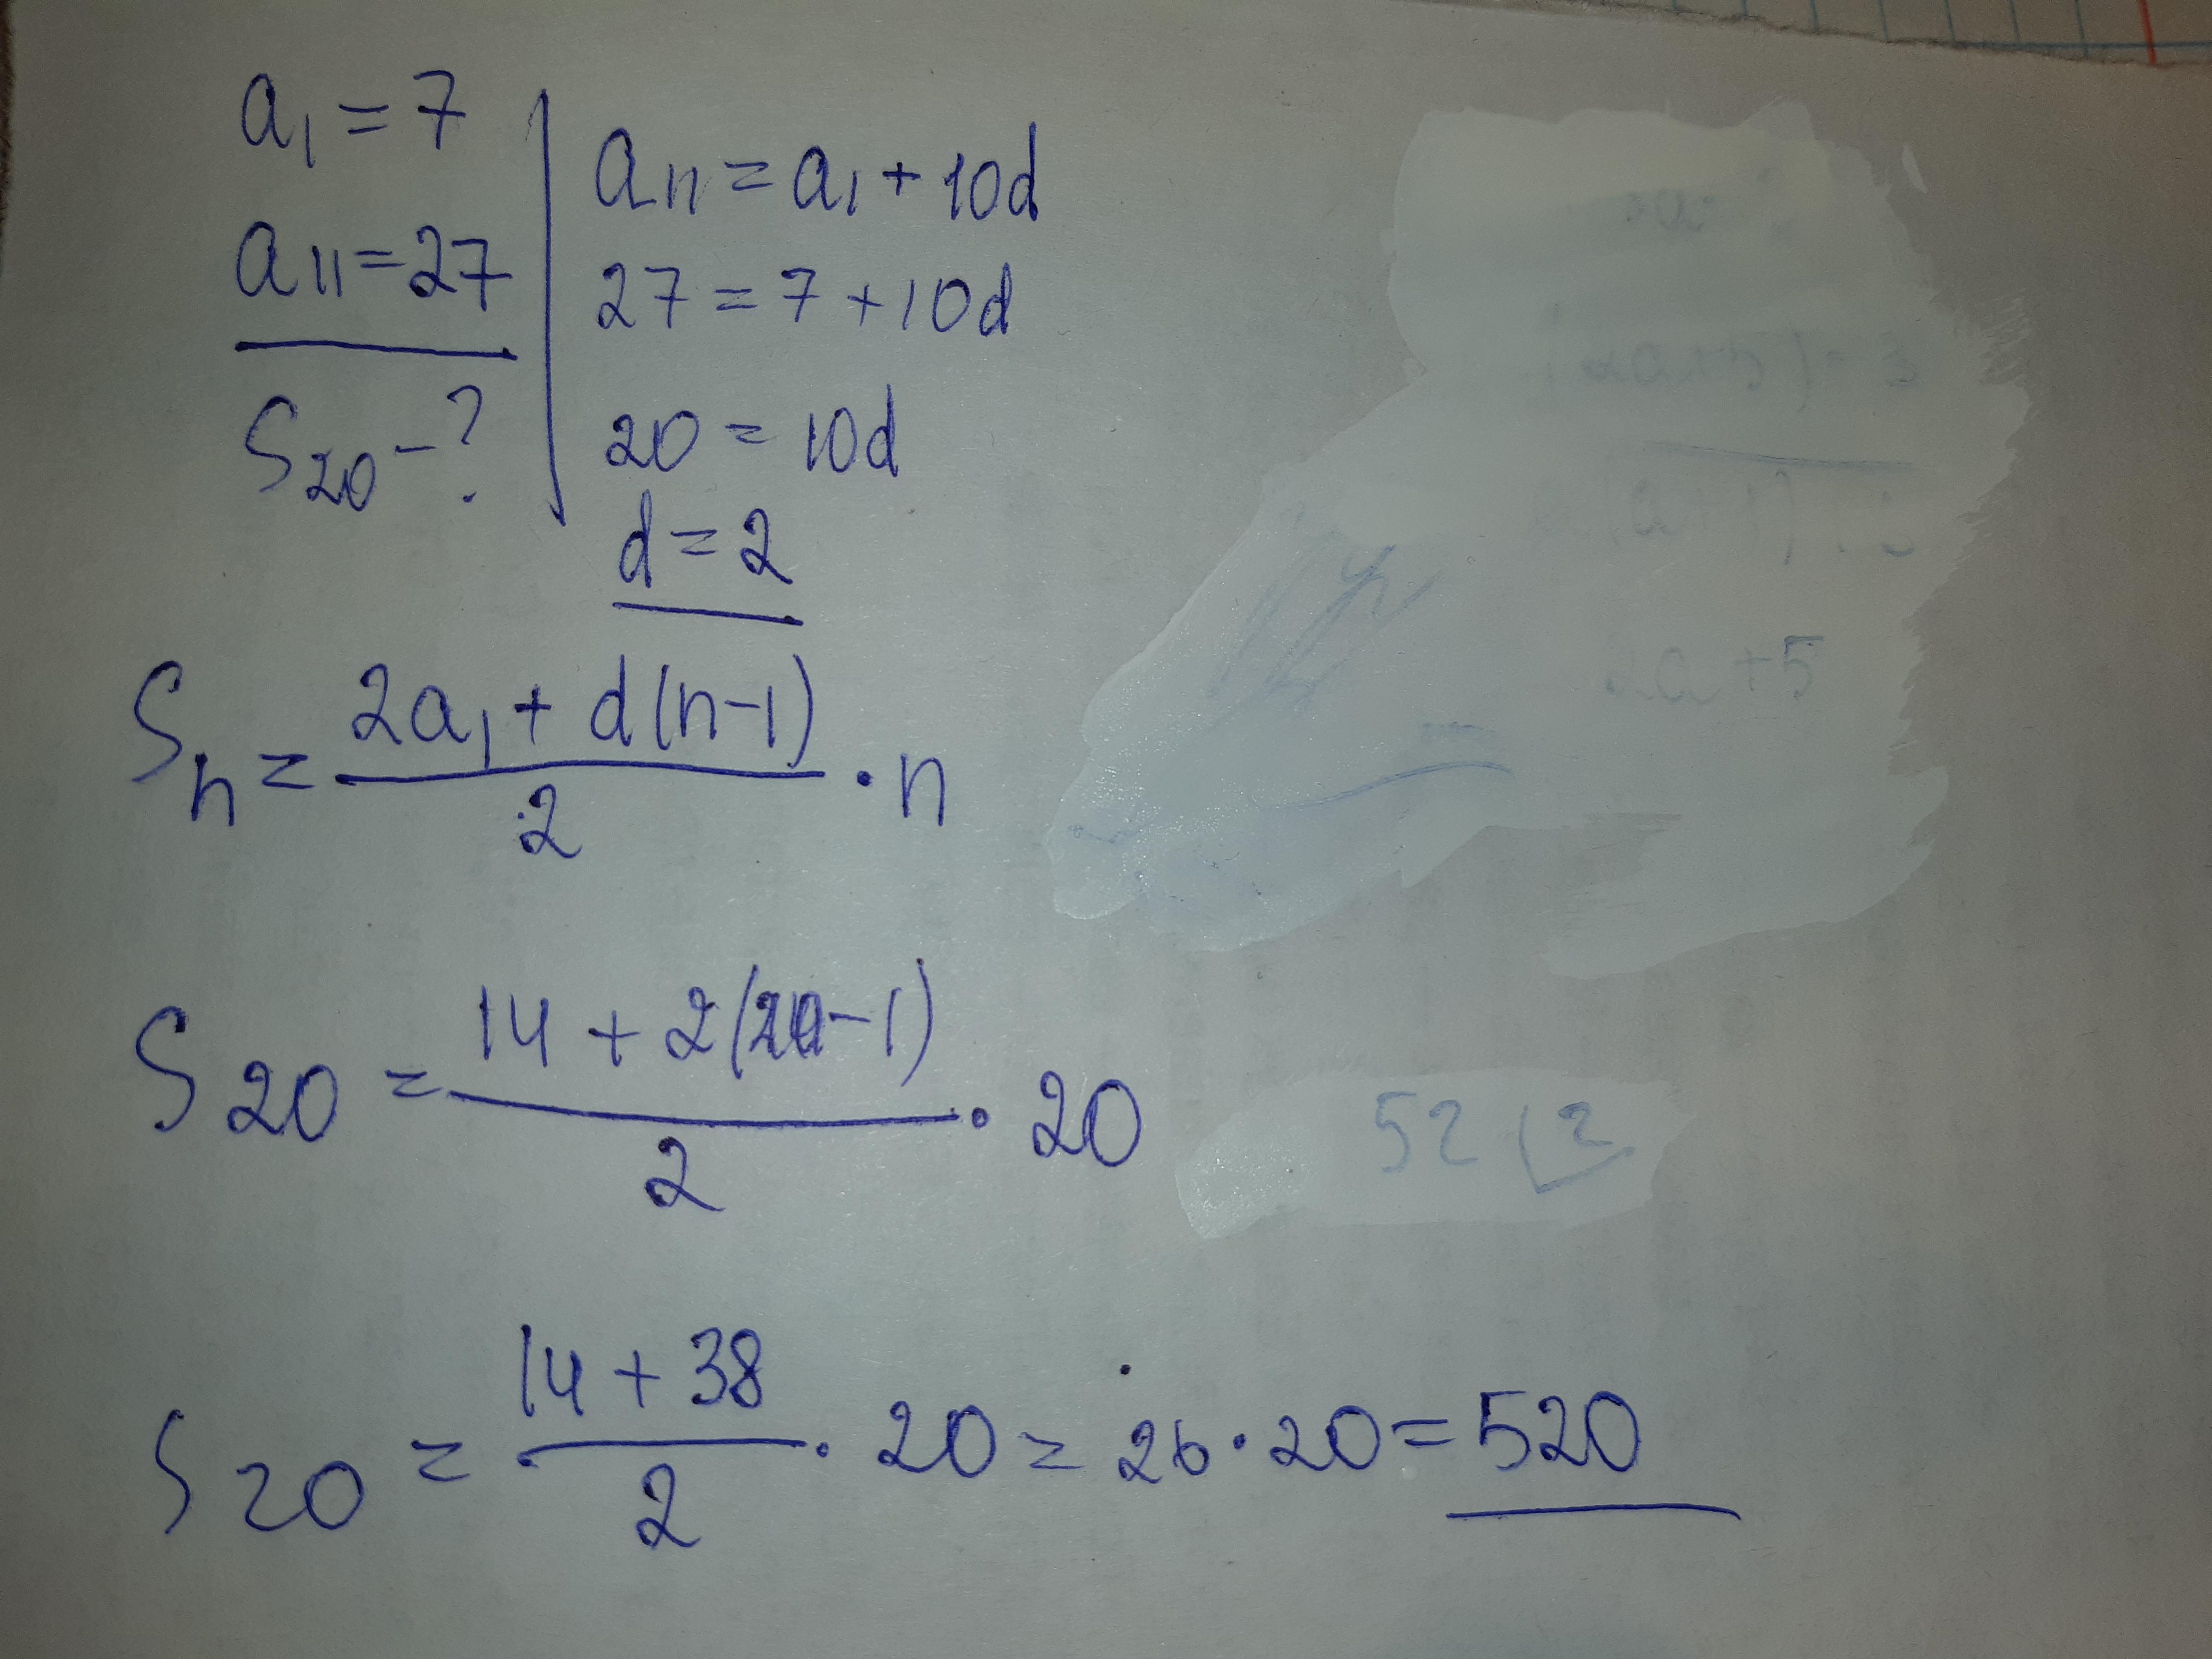 a₁ = 7
a₁₁ = 27
S₂₀ - ?
a₁₁ = a₁ + 10d
27 = 7 + 10d
20 = 10d
d = 2
Sₙ = (2a₁ + d(n-1))/2 · n
S₂₀ = (14 + 2(20-1))/2 · 20
52 2
S₂₀ = (14 + 38)/2 · 20 = 26 · 20 = 520
2a + 5